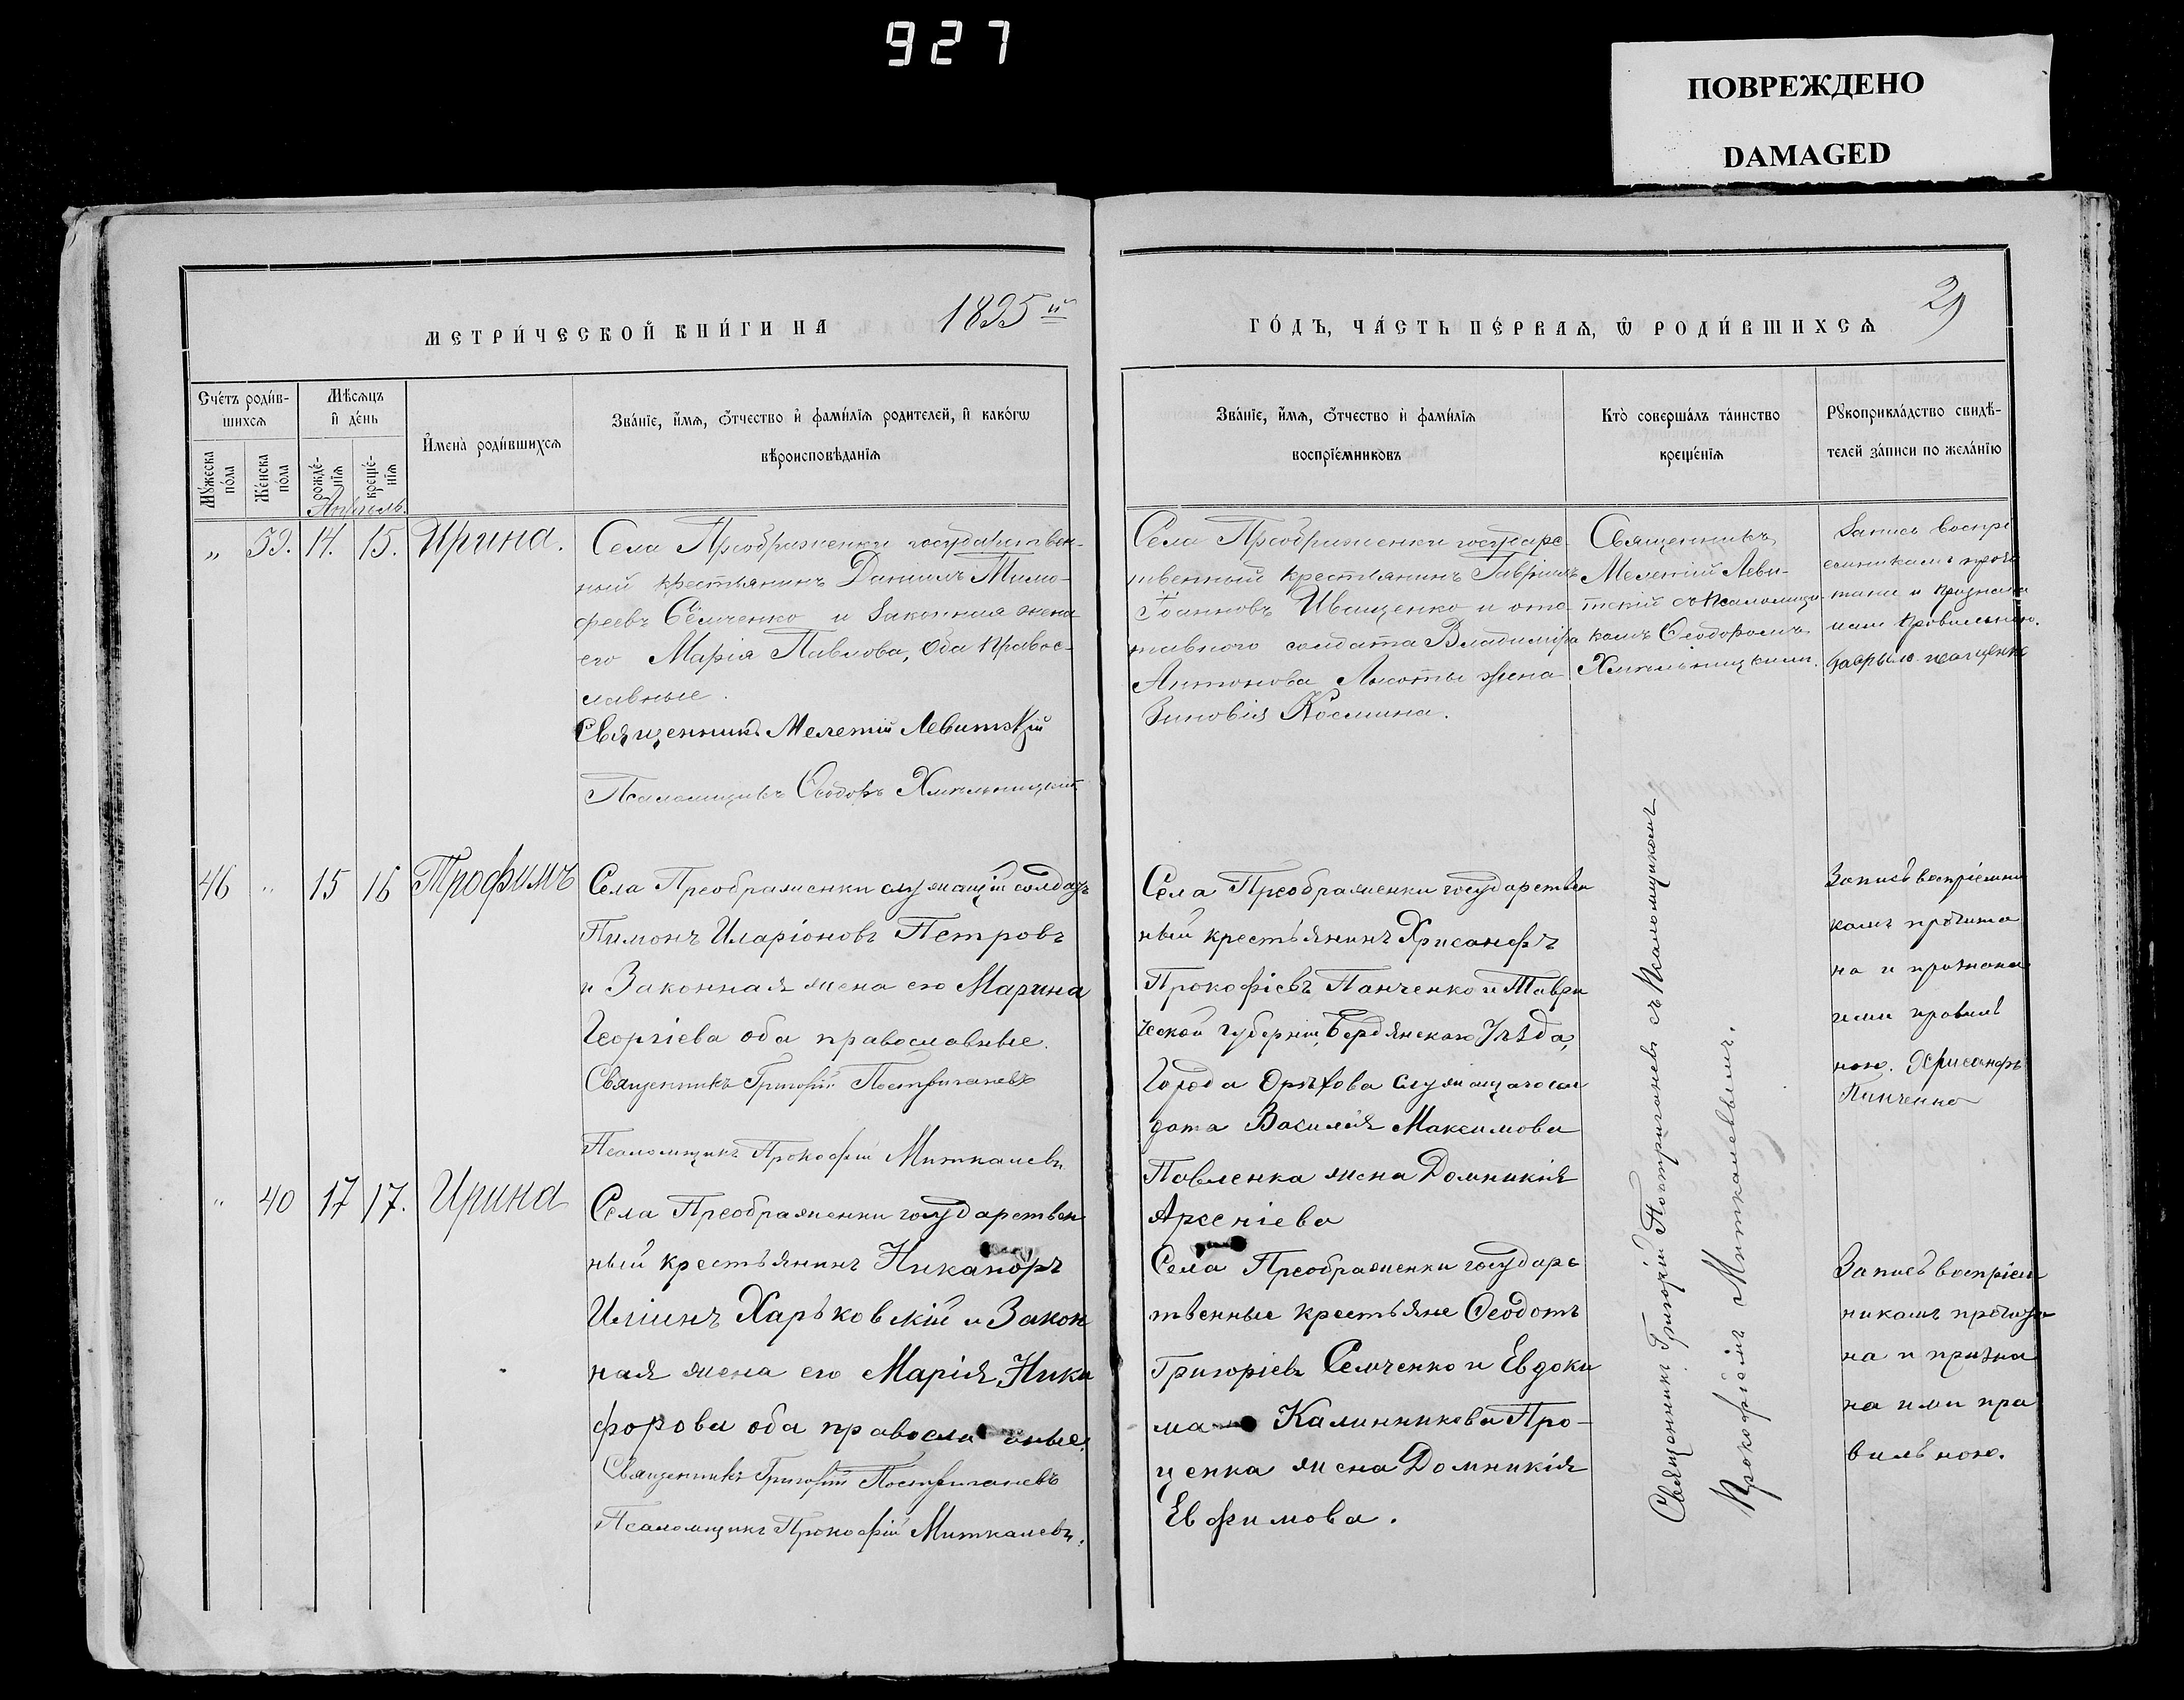 927
ПОВРЕЖДЕНО
DAMAGED
МЕТРИ́ЧЕСКОЙ КНИ́ГИ НА 1895й
ГО́ДЪ, ЧА́СТЬ ПЕ́РВАѦ, Ѡ РОДИ́ВШИХСѦ
29
Сче́тъ роди́в-
шихсѧ
Мꙋ́жеска по́ла
Же́нска по́ла
Мѣ́сѧцъ
и҆ де́нь
рожде́-
нїѧ
креще́-
нїѧ
И҆мена̀ роди́вшихсѧ
Зва́нїе, и҆́мѧ, ѻ҆́тчество и҆ фами́лїѧ роди́телей, и҆ како́гѡ
вѣроисповѣ́данїѧ
Зва́нїе, и҆́мѧ, ѻ҆́тчество и҆ фами́лїѧ
воспрїе́мниковъ
Кто̀ соверша́лъ та́инство
креще́нїѧ
Рꙋкоприкла́дство свидѣ́-
телей за́писи по жела́нїю
Апрѣль.
„ 39. 14. 15. Ирина.
Села Преображенки государствен-
ный крестьянинъ Даніилъ Тимо-
феевъ Семченко и законная жена
его Марія Павлова, оба правос-
лавные.
Священникъ Мелетій Левитскій
Псаломщикъ Ѳеодоръ Хмельницкій
Села Преображенки государс-
твенный крестьянинъ Гавріилъ
Іоанновъ Иващенко и отс-
тавного солдата Владиміра
Антонова Лысоты жена
Зиновія Косьмина.
Священникъ
Мелетій Леви-
тскій съ псаломщи-
комъ Ѳеодоромъ
Хмельницкимъ.
Запись воспрі
емникамъ прочи
тана и признана
ими правильною.
46 „ 15 16 Трофимъ
Села Преображенки служащій солдатъ
Пимонъ Иларіоновъ Петровъ
и Законная жена его Марина
Георгіева оба православные.
Священникъ Григорій Постригачевъ
Псаломщикъ Прокофій Миткалевъ
Села Преображенки государствен
ный крестьянинъ Хрисанфъ
Прокофіевъ Панченко и Таври
ческой губерніи, Бердянскаго Уѣзда,
Города Орѣхова служащаго сол
дата Василія Максимова
Павленка жена Домникія
Арсеніева
Запись воспріемни
камъ прочита
на и признана
ими правиль
ною. Хрисанфъ
Панченко
„ 40 17 17. Ирина
Села Преображенки государствен
ный крестьянинъ Никаноръ
Иліинъ Харьковскій и Закон
ная жена его Марія Ники
форова оба православные.
Священникъ Григорій Постригачевъ
Псаломщикъ Прокофій Миткалевъ.
Села Преображенки государс
твенные крестьяне Ѳеодотъ
Григоріевъ Семченко и Евдоки
ма Калинникова Про-
ценка жена Домникія
Евфимова.
Священникъ Григорій Постригачевъ съ Псаломщикомъ
Прокофіемъ Миткалевымъ.
Запись воспріем
никамъ прочита
на и призна
на ими пра
вильною.